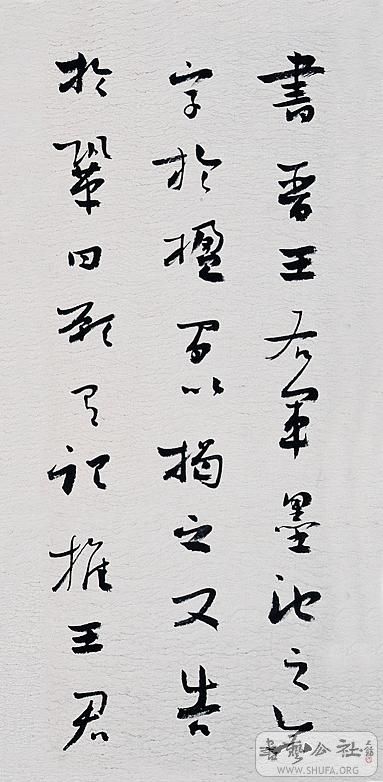 書晉王右軍墨池之六
字於楹間以揭之又告
於鞏曰願有記推王君
書藝公社
WWW.SHUFA.ORG